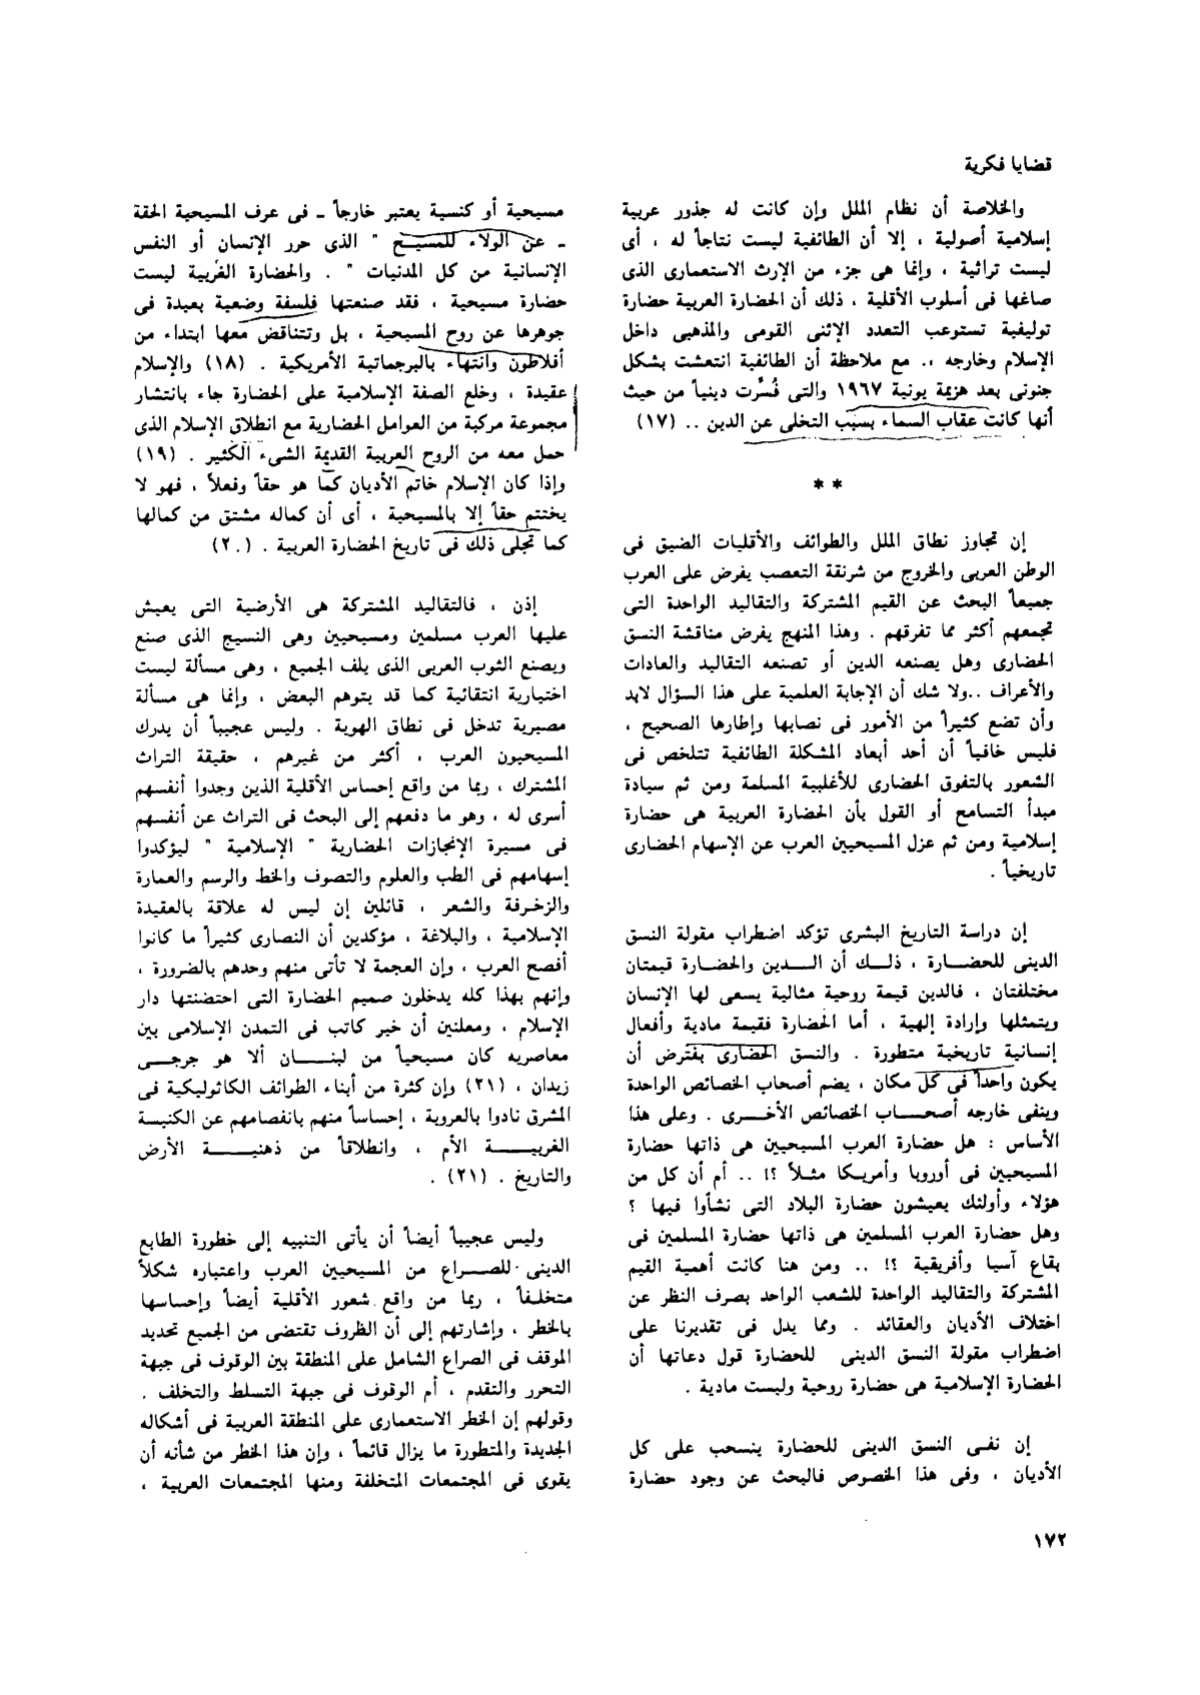 قضايا فكرية
والخلاصة أن نظام الملل وإن كانت له جذور عربية
إسلامية أصولية ، إلا أن الطائفية ليست نتاجاً له ، أى
ليست تراثية ، وإنما هى جزء من الإرث الاستعمارى الذى
صاغها فى أسلوب الأقلية ، ذلك أن الحضارة العربية حضارة
توليفية تستوعب التعدد الإثنى القومى والمذهبى داخل
الإسلام وخارجه .. مع ملاحظة أن الطائفية انتعشت بشكل
جنونى بعد هزيمة يونية ١٩٦٧ والتى فُسِّرت دينياً من حيث
أنها كانت عقاب السماء بسبب التخلى عن الدين .. (١٧)
* *
إن تجاوز نطاق الملل والطوائف والأقليات الضيق فى
الوطن العربى والخروج من شرنقة التعصب يفرض على العرب
جميعاً البحث عن القيم المشتركة والتقاليد الواحدة التى
تجمعهم أكثر مما تفرقهم . وهذا المنهج يفرض مناقشة النسق
الحضارى وهل يصنعه الدين أو تصنعه التقاليد والعادات
والأعراف ..ولا شك أن الإجابة العلمية على هذا السؤال لابد
وأن تضع كثيراً من الأمور فى نصابها وإطارها الصحيح ،
فليس خافياً أن أحد أبعاد المشكلة الطائفية تتلخص فى
الشعور بالتفوق الحضارى للأغلبية المسلمة ومن ثم سيادة
مبدأ التسامح أو القول بأن الحضارة العربية هى حضارة
إسلامية ومن ثم عزل المسيحيين العرب عن الإسهام الحضارى
تاريخياً .
إن دراسة التاريخ البشرى تؤكد اضطراب مقولة النسق
الدينى للحضـــارة ، ذلــك أن الـــدين والحضـارة قيمتان
مختلفتان ، فالدين قيمة روحية مثالية يسعى لها الإنسان
ويتمثلها وإرادة إلهية ، أما الحضارة فقيمة مادية وأفعال
إنسانية تاريخية متطورة . والنسق الحضارى يفترض أن
يكون واحداً فى كل مكان ، يضم أصحاب الخصائص الواحدة
وينفى خارجه أصحـــاب الخصائص الأخـــرى . وعلى هذا
الأساس : هل حضارة العرب المسيحيين هى ذاتها حضارة
المسيحيين فى أوروبا وأمريكا مثـلاً ؟! .. أم أن كل من
هؤلاء وأولئك يعيشون حضارة البلاد التى نشأوا فيها ؟
وهل حضارة العرب المسلمين هى ذاتها حضارة المسلمين فى
بقاع آسيا وأفريقية ؟! .. ومن هنا كانت أهمية القيم
المشتركة والتقاليد الواحدة للشعب الواحد بصرف النظر عن
اختلاف الأديان والعقائد . ومما يدل فى تقديرنا على
اضطراب مقولة النسق الدينى للحضارة قول دعاتها أن
الحضارة الإسلامية هى حضارة روحية وليست مادية .
إن نفـى النسق الدينى للحضارة ينسحب على كل
الأديان ، وفى هذا الخصوص فالبحث عن وجود حضارة
مسيحية أو كنسية يعتبر خارجاً ـ فى عرف المسيحية الحقة
ـ عن الولاء للمسيـح " الذى حرر الإنسان أو النفس
الإنسانية من كل المدنيات " . والحضارة الغربية ليست
حضارة مسيحية ، فقد صنعتها فلسفة وضعية بعيدة فى
جوهرها عن روح المسيحية ، بل وتتناقض معها ابتداء من
أفلاطون وانتهاء بالبرجماتية الأمريكية . (١٨) والإسلام
عقيدة ، وخلع الصفة الإسلامية على الحضارة جاء بانتشار
مجموعة مركبة من العوامل الحضارية مع انطلاق الإسلام الذى
حمل معه من الروح العربية القديمة الشىء الكثير . (١٩)
وإذا كان الإسلام خاتم الأديان كما هو حقاً وفعلاً ، فهو لا
يختتم حقاً إلا بالمسيحية ، أى أن كماله مشتق من كمالها
كما تجلى ذلك فى تاريخ الحضارة العربية . (٢٠)
إذن ، فالتقاليد المشتركة هى الأرضية التى يعيش
عليها العرب مسلمين ومسيحيين وهى النسيج الذى صنع
ويصنع الثوب العربى الذى يلف الجميع ، وهى مسألة ليست
اختيارية انتقائية كما قد يتوهم البعض ، وإنما هى مسألة
مصيرية تدخل فى نطاق الهوية . وليس عجيباً أن يدرك
المسيحيون العرب ، أكثر من غيرهم ، حقيقة التراث
المشترك ، ربما من واقع إحساس الأقلية الذين وجدوا أنفسهم
أسرى له ، وهو ما دفعهم إلى البحث فى التراث عن أنفسهم
فى مسيرة الإنجازات الحضارية " الإسلامية " ليؤكدوا
إسهامهم فى الطب والعلوم والتصوف والخط والرسم والعمارة
والزخرفة والشعر ، قائلين إن ليس له علاقة بالعقيدة
الإسلامية ، والبلاغة ، مؤكدين أن النصارى كثيراً ما كانوا
أفصح العرب ، وإن العجمة لا تأتى منهم وحدهم بالضرورة ،
وإنهم بهذا كله يدخلون صميم الحضارة التى احتضنتها دار
الإسلام ، ومعلنين أن خير كاتب فى التمدن الإسلامى بين
معاصريه كان مسيحياً من لبنــــان ألا هو جرجــى
زيدان ، (٢١) وإن كثرة من أبناء الطوائف الكاثوليكية فى
المشرق نادوا بالعروبة ، إحساساً منهم بانفصامهم عن الكنيسة
الغربيـــــة الأم ، وانطلاقاً من ذهنيـــــة الأرض
والتاريخ . (٢١) .
وليس عجيباً أيضاً أن يأتى التنبيه إلى خطورة الطابع
الدينى للصــراع من المسيحيين العرب واعتباره شكلاً
متخلفاً ، ربما من واقع شعور الأقلية أيضاً وإحساسها
بالخطر ، وإشارتهم إلى أن الظروف تقتضى من الجميع تحديد
الموقف فى الصراع الشامل على المنطقة بين الوقوف فى جبهة
التحرر والتقدم ، أم الوقوف فى جبهة التسلط والتخلف .
وقولهم إن الخطر الاستعمارى على المنطقة العربية فى أشكاله
الجديدة والمتطورة ما يزال قائماً ، وإن هذا الخطر من شأنه أن
يقوى فى المجتمعات المتخلفة ومنها المجتمعات العربية ،
١٧٢